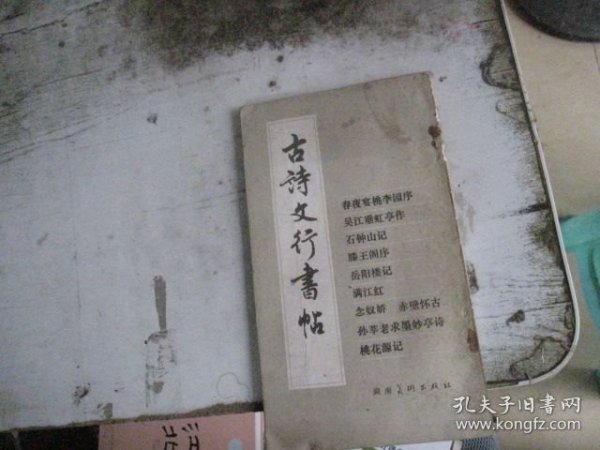 古詩文行書帖
春夜宴桃李园序
吴江垂虹亭作
石钟山记
滕王阁序
岳阳楼记
满江红
念奴娇 赤壁怀古
孙莘老求墨妙亭诗
桃花源记
湖南美术出版社
孔夫子旧书网
www.kongfz.com